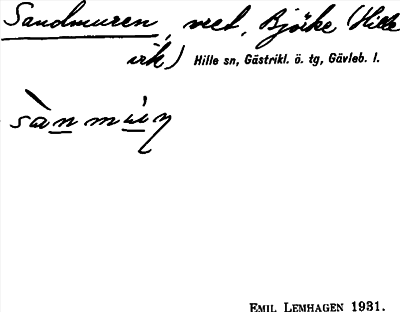 Sandmuren, vret, Björke (Hille
vik) Hille sn, Gästrikl. ö. tg, Gävleb. l.
sànmùṇ
EMIL LEMHAGEN 1931.